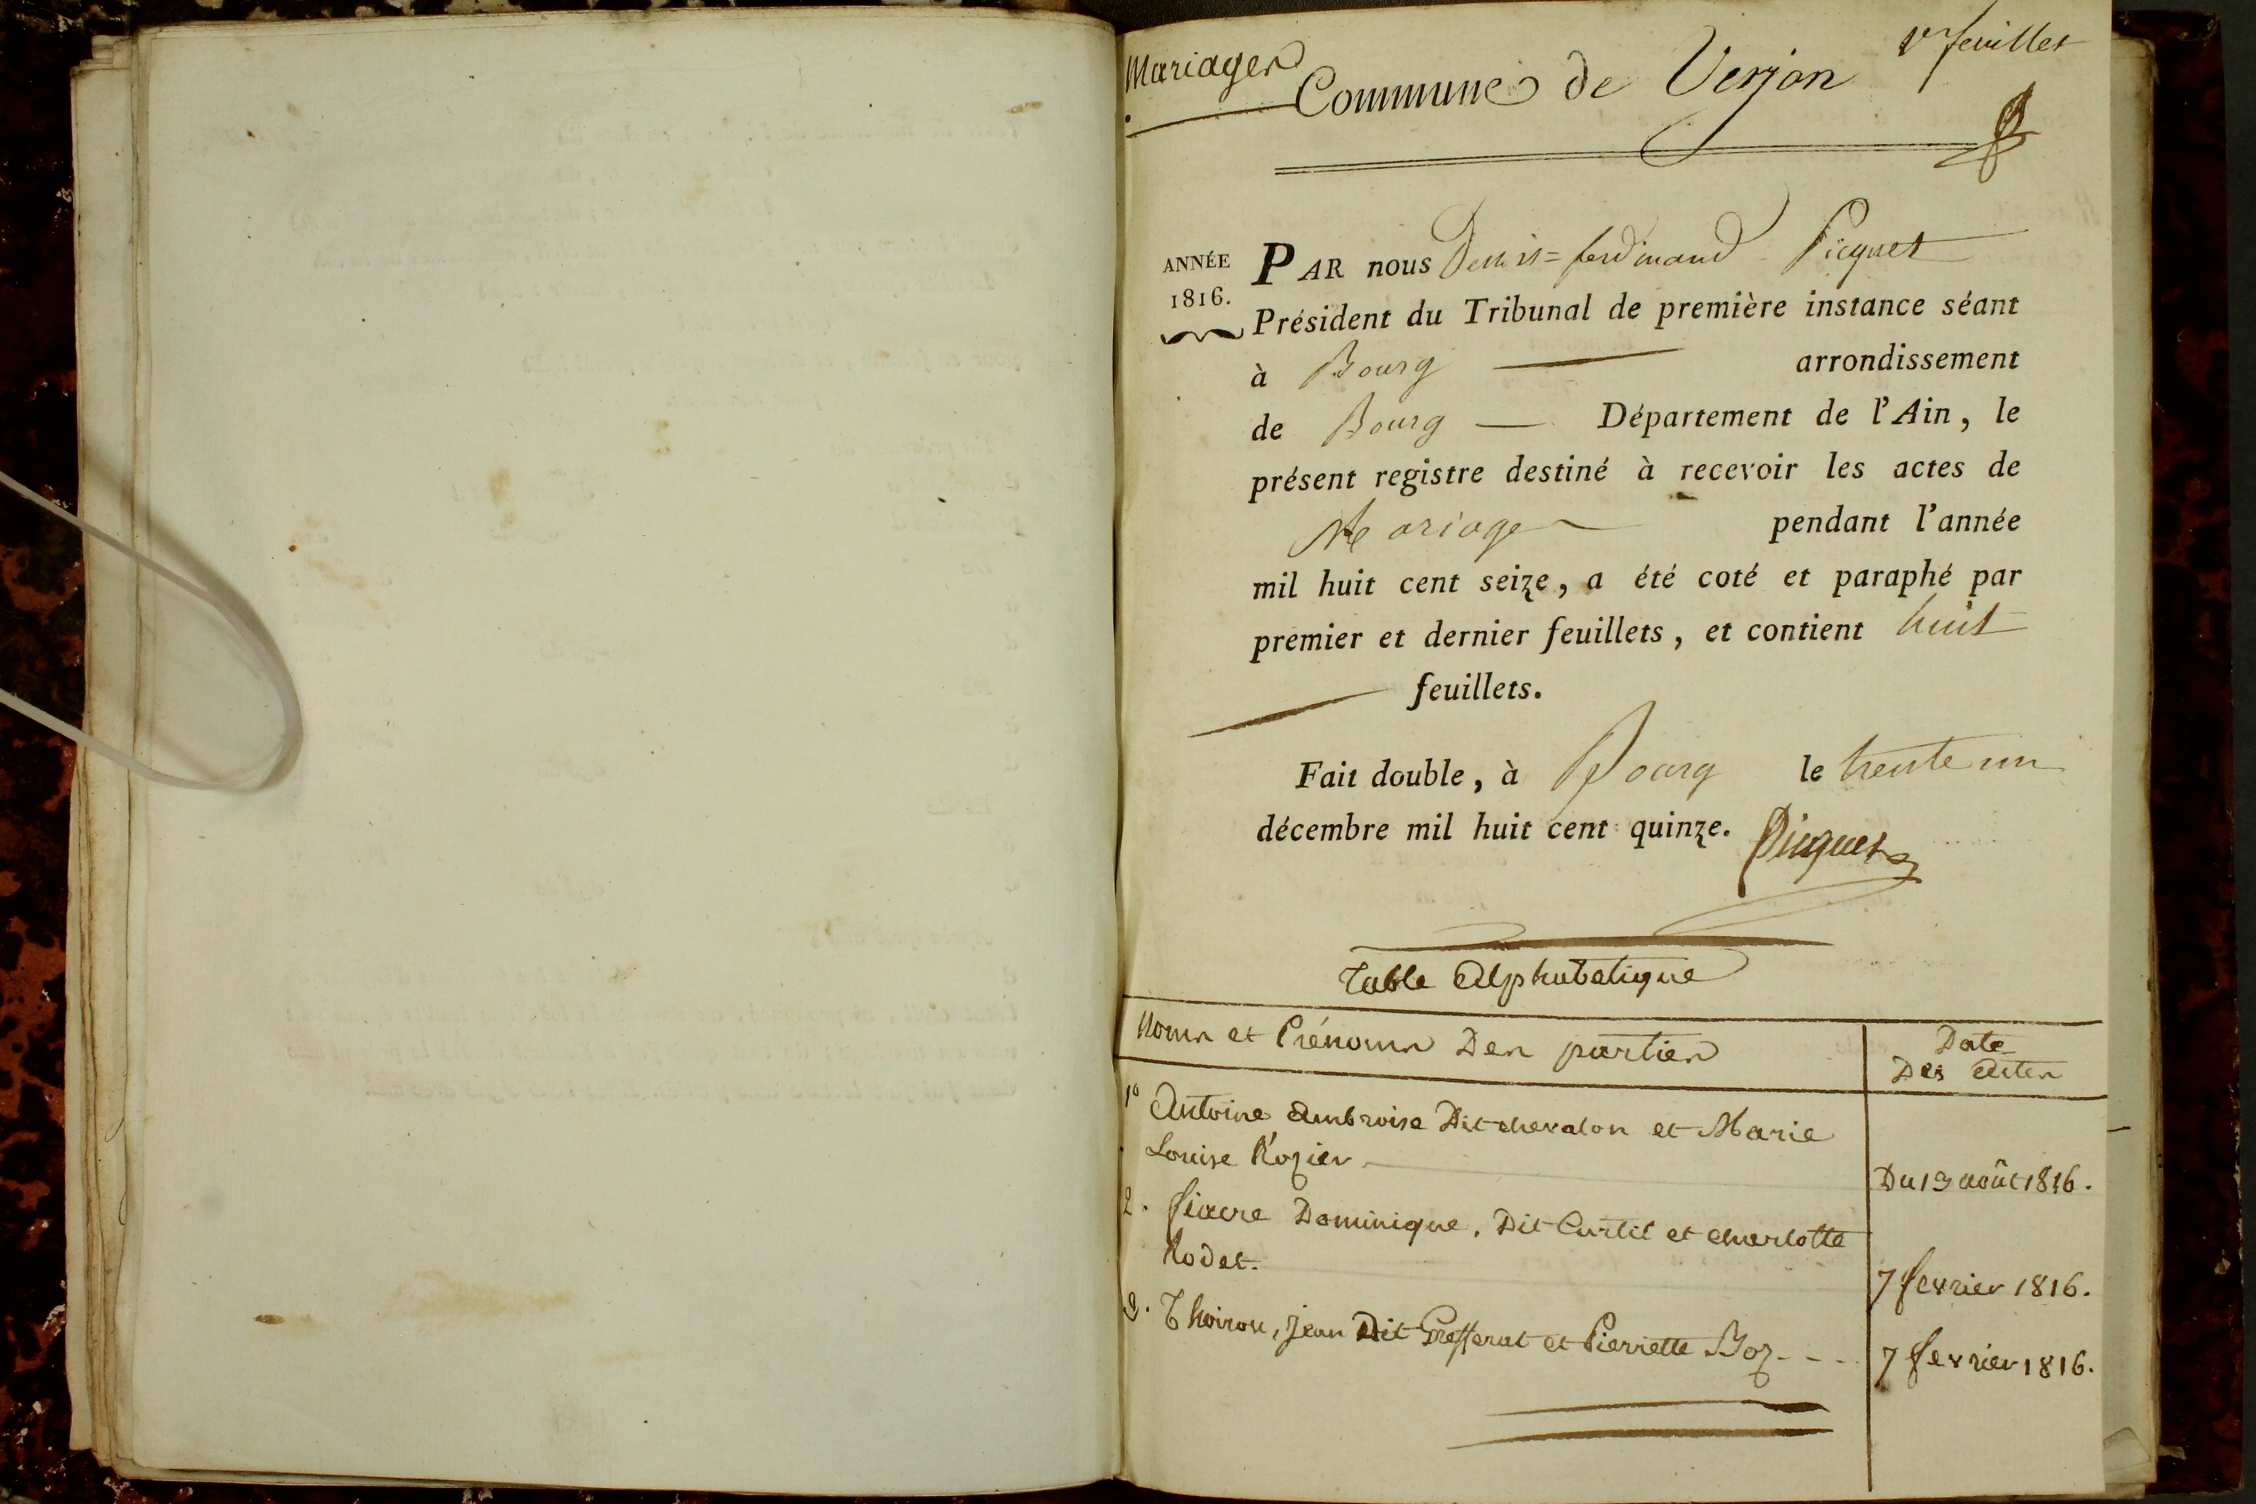 Mariages
1er feuillet
Commune de Verjon
ANNÉE
1816.
PAR nous Denis=ferdinand Picquet
Président du Tribunal de première instance séant
à Bourg arrondissement
de Bourg Département de l'Ain, le
présent registre destiné à recevoir les actes de
Mariage pendant l'année
mil huit cent seize, a été coté et paraphé par
premier et dernier feuillets, et contient huit
feuillets.
Fait double, à Bourg le trente un
décembre mil huit cent quinze.
Picquet
Table Alphabetique
Noms et Prénoms Des parties
Date
Des Actes
1º Antoine Ambroise Dit chevalon et Marie
Louise Rozier
Du 13 août 1816.
2. fiacre Dominique, Dit Curtil et charlotte
Rodet.
7 fevrier 1816.
3. Thoiron, Jean Dit Grefferat et Pierrette Boz
7 fevrier 1816.